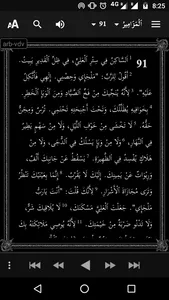 8:25
AA
91
اَلْمَزَامِيرُ
arb-vdv
91 1 اَلسَّاكِنُ فِي سِتْرِ الْعَلِيِّ، فِي ظِلِّ الْقَدِيرِ يَبِيتُ.
2 أَقُولُ لِلرَّبِّ: «مَلْجَإِي وَحِصْنِي. إِلهِي فَأَتَّكِلُ
عَلَيْهِ». 3 لأَنَّهُ يُنَجِّيكَ مِنْ فَخِّ الصَّيَّادِ وَمِنَ الْوَبَإِ الْخَطِرِ.
4 بِخَوَافِيهِ يُظَلِّلُكَ، وَتَحْتَ أَجْنِحَتِهِ تَحْتَمِي. تُرْسٌ وَمِجَنٌّ
حَقُّهُ. 5 لاَ تَخْشَى مِنْ خَوْفِ اللَّيْلِ، وَلاَ مِنْ سَهْمٍ يَطِيرُ
فِي النَّهَارِ، 6 وَلاَ مِنْ وَبَإٍ يَسْلُكُ فِي الدُّجَى، وَلاَ مِنْ
هَلاَكٍ يُفْسِدُ فِي الظَّهِيرَةِ. 7 يَسْقُطُ عَنْ جَانِبِكَ أَلْفٌ،
وَرِبْوَاتٌ عَنْ يَمِينِكَ. إِلَيْكَ لاَ يَقْرُبُ. 8 إِنَّمَا بِعَيْنَيْكَ تَنْظُرُ
وَتَرَى مُجَازَاةَ الأَشْرَارِ. 9 لأَنَّكَ قُلْتَ: «أَنْتَ يَا رَبُّ
مَلْجَإِي». جَعَلْتَ الْعَلِيَّ مَسْكَنَكَ، 10 لاَ يُلاَقِيكَ شَرٌّ،
وَلاَ تَدْنُو ضَرْبَةٌ مِنْ خَيْمَتِكَ. 11 لأَنَّهُ يُوصِي مَلاَئِكَتَهُ بِكَ